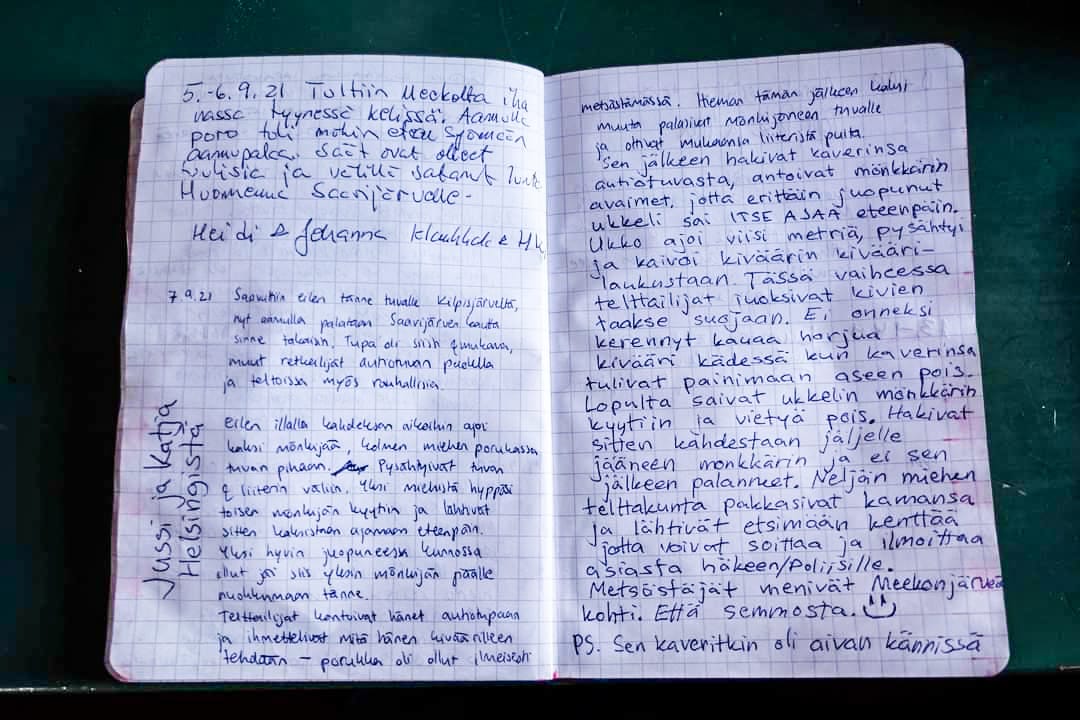 5.-6.9.21 Tultiin Meekolta iha
nassa tyynessä kelissä. Aamulla
poro tuli mökin eteen syömään
aamupalaa. Säät ovat olleet
tuulisia ja vetillä satanut lunta
Huomenna Saarijärvelle.
Heidi & Johanna
7.9.21 Saavuttiin eilen tänne tuvalle Kilpisjärveltä,
nyt aamulla palataan Saarijärven kautta
sinne takaisin. Tupa oli siisti & mukava,
muut retkeilijät autiotuvan puolella
ja teltoissa myös rauhallisia
Eilen illalla kahdeksan aikoihin ajoi
kaksi mönkijää, kolmen miehen porukassa
tuvan pihaan. Pysähtyivät tuvan
& liiterin väliin. Yksi miehistä hyppäsi
toisen mönkijän kyytiin ja lähtivät
sitten kaksistaan ajamaan eteenpäin.
Yksi hyvin juopuneessa kunnossa
ollut jäi siis yksin mönkijän päälle
nuokkumaan tänne.
Telttailijat kantoivat hänet autiotupaan
ja ihmettelivät mitä hänen kiväärilleen
tehdään – porukka oli ollut ilmeisesti
Jussi ja Katja
Helsingistä
metsästämässä. Hieman tämän jälkeen kaksi
muuta palasivat mönkijöineen tuvalle
ja ottivat mukaansa liiteristä puita.
Sen jälkeen hakivat kaverinsa
autiotuvasta, antoivat mönkkärin
avaimet, jotta erittäin juopunut
ukkeli sai ITSE AJAA eteenpäin.
Ukko ajoi viisi metriä, pysähtyi
ja kaivoi kiväärin kivääri-
laukustaan. Tässä vaiheessa
telttailijat juoksivat kivien
taakse suojaan. Ei onneksi
kerennyt kauaa horjua
kivääri kädessä kun kaverinsa
tulivat painimaan aseen pois.
Lopulta saivat ukkelin mönkkärin
kyytiin ja vietyä pois. Hakivat
sitten kahdestaan jäljelle
jääneen mönkkärin ja ei sen
jälkeen palanneet. Neljän miehen
telttakunta pakkasivat kamansa
ja lähtivät etsimään kenttää
jotta voivat soittaa ja ilmoittaa
asiasta häkeen/poliisille.
Metsästäjät menivät Meekonjärveä
kohti. Että semmosta.
PS. Sen kaveritkin oli aivan kännissä